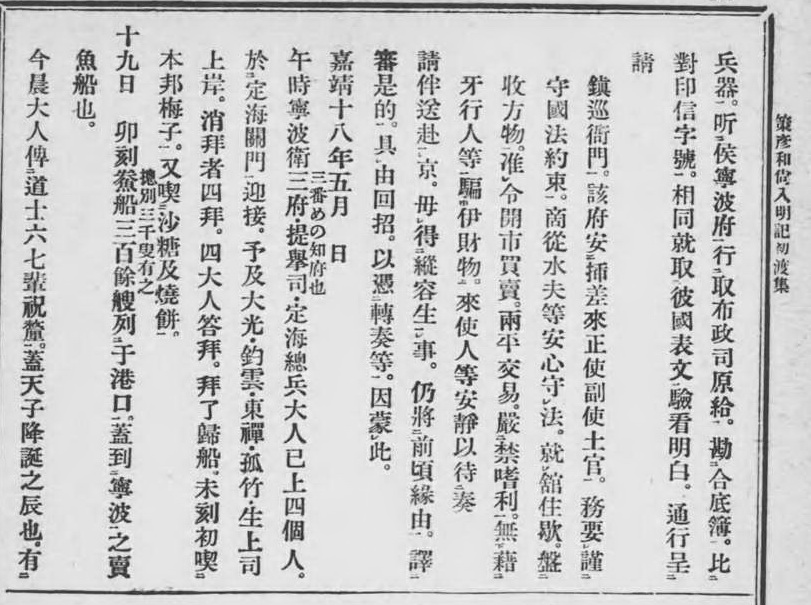 策彥和尙入明記初渡集
兵器。听侯寧波府行取布政司原給。勘合底簿。比
對印信字號。相同就取彼國表文驗看明白。通行呈
請
鎭巡衙門。該府安揷差來正使副使土官。務要謹
守國法約束。商從水夫等安心守法。就舘住歇。盤
收方物。准令開市買賣。兩平交易。嚴禁嗜利。無藉
牙行人等騙伊財物。來使人等安靜以待奏
請伴送赴京。毋得縱容生事。仍將前項緣由。譯
審是的。具由回招。以憑轉奏等。因蒙此。
嘉靖十八年五月 日
三番めの知府也
午時寧波衛三府・提擧司・定海總兵大人已上四個人。
於定海關門迎接。予及大光・鈞雲・東禪・孤竹・生上司
上岸。消拜者四拜。四大人答拜。拜了歸船。未刻初喫
本邦梅子。又喫沙糖及燒餠。
摠別三千叟有之
十九日 卯刻鯗船三百餘艘列于港口。蓋到寧波之賣
魚船也。
今晨大人俾道士六七輩祝釐。蓋天子降誕之辰也。有